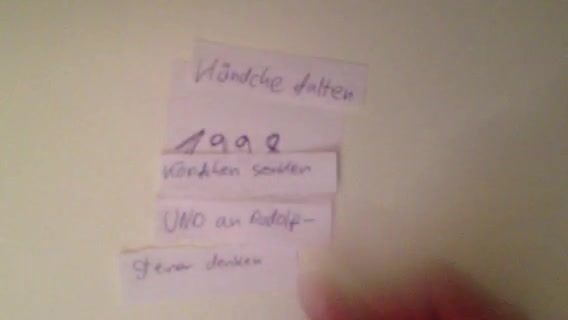 Händche falten
1998
Köpfchen senken
UNO an Rudolf-
Steiner denken